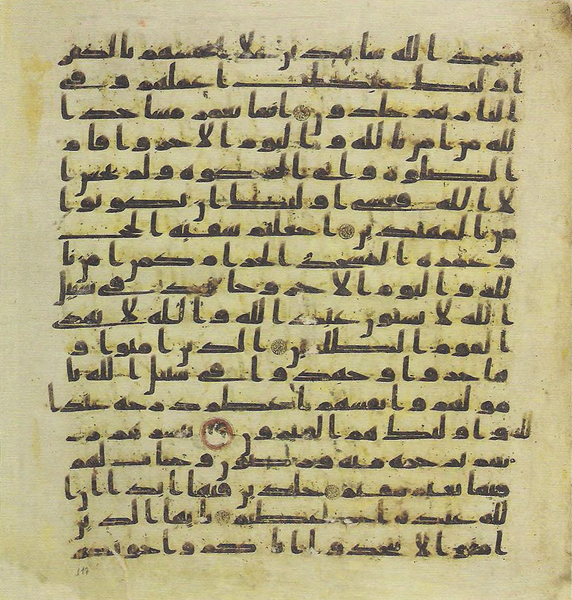 مسجد الله شهدين على انفسهم بالكفر
اولئك حبطت اعملهم وفي
النار هم خلدون انما يعمر مسجد ا
لله من امن بالله واليوم الاخر واقام
الصلوة واتى الزكوة ولم يخش ا
لا الله فعسى اولئك ان يكونوا
من المهتدين اجعلتم سقية الحج
وعمرة المسجد الحرام كمن امن با
لله واليوم الاخر وجهد في سبيل
الله لا يستون عند الله والله لا يهدي
القوم الظلمين الذين امنوا و
هاجروا وجهدوا في سبيل الله با
مولهم وانفسهم اعظم درجة عند ا
لله واولئك هم الفئزون يبشرهم ر
بهم برحمة منه ورضون وجنت لهم
فيها نعيم مقيم خلدين فيها ابدا ان ا
لله عنده اجر عظيم يايها الذين
امنوا لا تتخذوا اباكم واخونكم